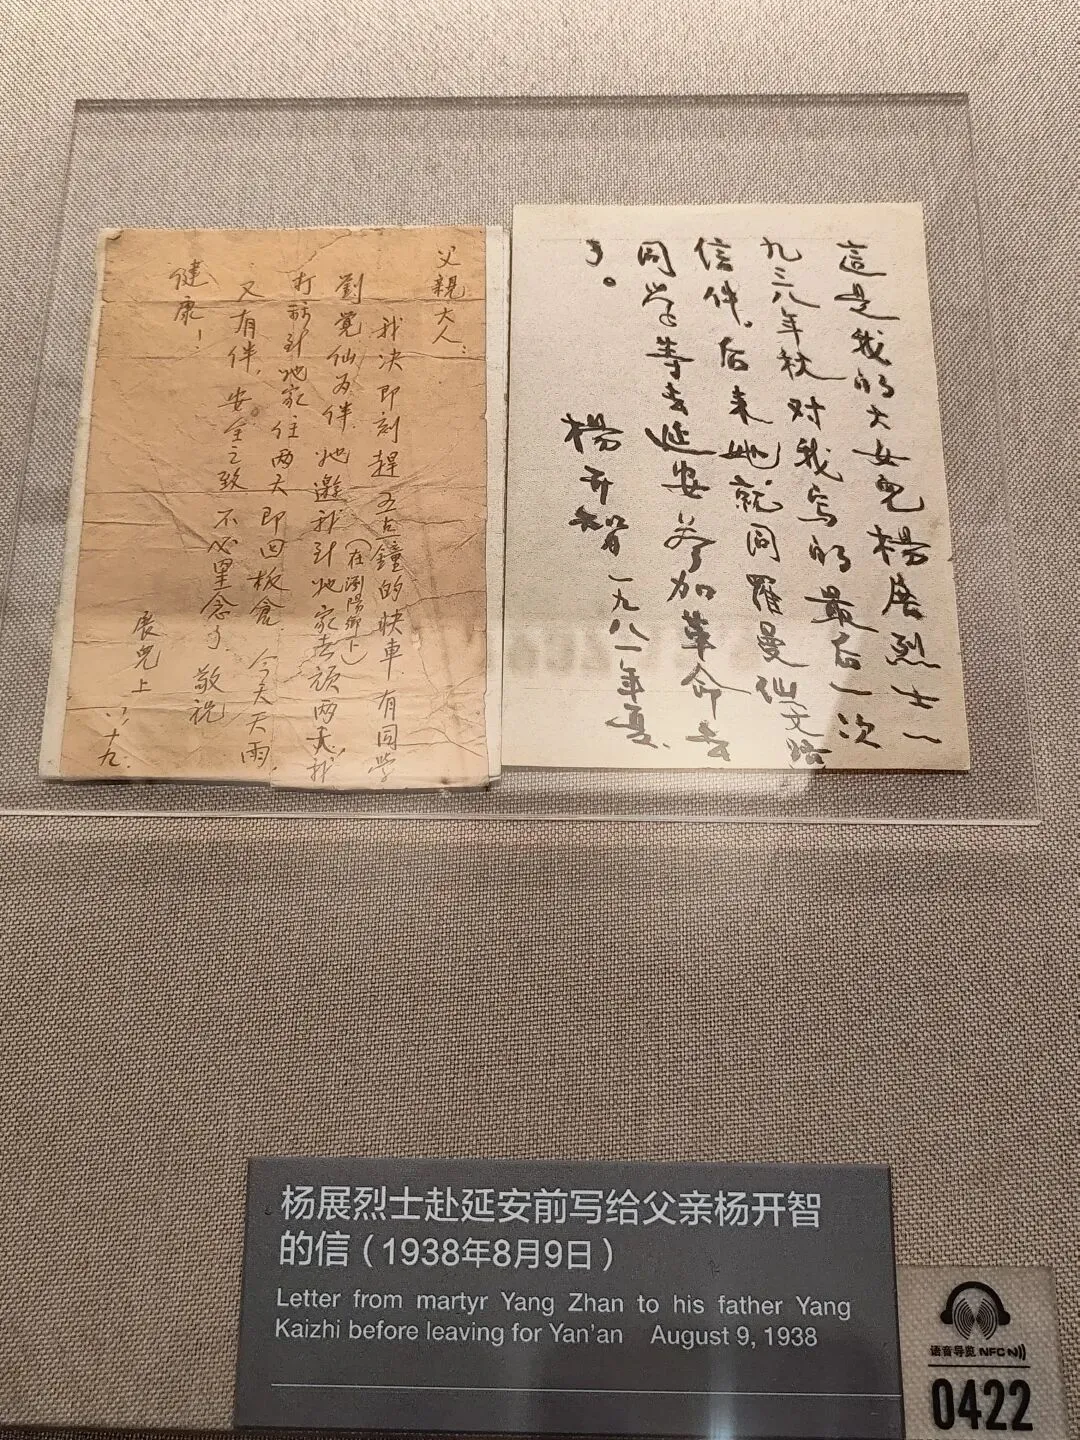 這是我的大女兒楊展烈士一
九三八年秋对我写的最后一次
信件。后来她就同羅曼仙文路
同学等去延安参加革命去
了。
楊开智 一九八一年夏
父親大人：
我决即刻趕五点鐘的快車，有同學
劉覺仙为伴，她邀我到她家（在瀏陽鄉下）去頑兩天，我
打祘到她家住两天即回板倉，今天天雨，
又有伴，安全之致，不必罣念了，敬祝
健康！
展兒上
八、十九.
杨展烈士赴延安前写给父亲杨开智
的信（1938年8月9日）
Letter from martyr Yang Zhan to his father Yang
Kaizhi before leaving for Yan'an August 9, 1938
语音导览 NFC
0422